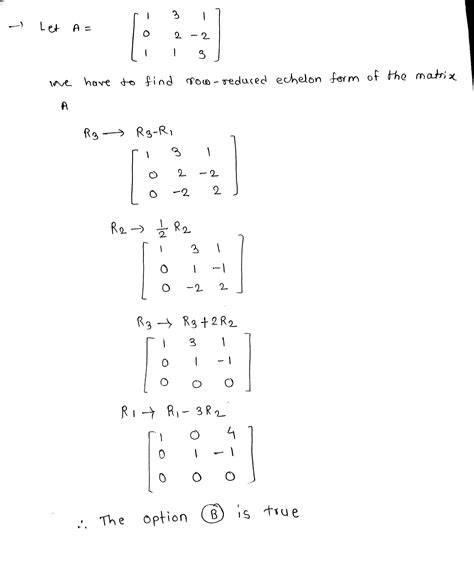 → Let A = [ 1 3 1
0 2 -2
1 1 3 ]
we have to find row-reduced echelon form of the matrix
A
R3 → R3-R1
[ 1 3 1
0 2 -2
0 -2 2 ]
R2 → 1/2 R2
[ 1 3 1
0 1 -1
0 -2 2 ]
R3 → R3+2R2
[ 1 3 1
0 1 -1
0 0 0 ]
R1 → R1-3R2
[ 1 0 4
0 1 -1
0 0 0 ]
∴ The option Ⓑ is true